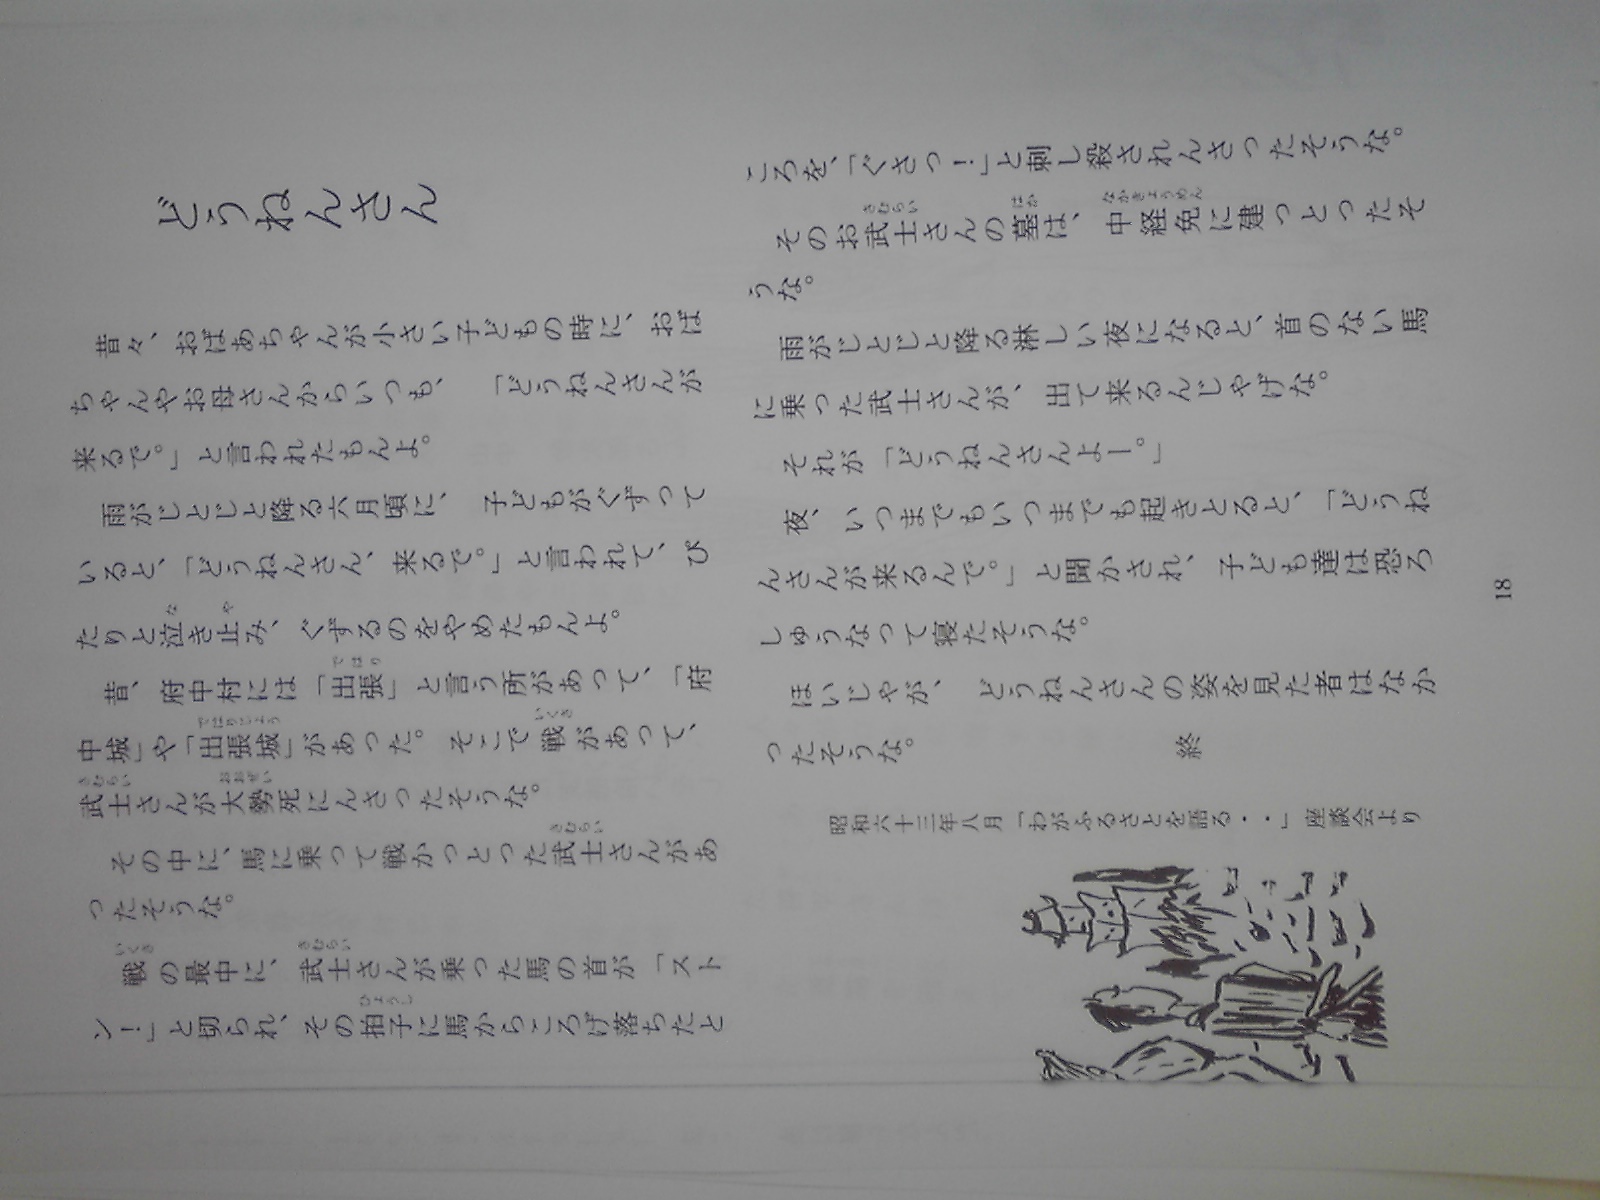 どうねんさん
昔々、おばあちゃんが小さい子どもの時に、おば
ちゃんやお母さんからいつも、「どうねんさんが
来るで。」と言われたもんよ。
雨がじとじと降る六月頃に、子どもがぐずって
いると、「どうねんさん、来るで。」と言われて、ぴ
たりと泣き止み、ぐずるのをやめたもんよ。
昔、府中村には「出張」と言う所があって、「府
中城」や「出張城」があった。そこで戦があって、
武士さんが大勢死にんさったそうな。
その中に、馬に乗って戦かっとった武士さんがあ
ったそうな。
戦の最中に、武士さんが乗った馬の首が「スト
ン!」と切られ、その拍子に馬からころげ落ちたと
ころを、「ぐさっ!」と刺し殺されんさったそうな。
そのお武士さんの墓は、中経免に建っとったそ
うな。
雨がじとじと降る淋しい夜になると、首のない馬
に乗った武士さんが、出て来るんじゃげな。
それが「どうねんさんよー。」
夜、いつまでもいつまでも起きとると、「どうね
んさんが来るんで。」と聞かされ、子ども達は恐ろ
しゅうなって寝たそうな。
ほいじゃが、どうねんさんの姿を見た者はなか
ったそうな。
終
昭和六十三年八月「わがふるさとを語る・・」座談会より
18